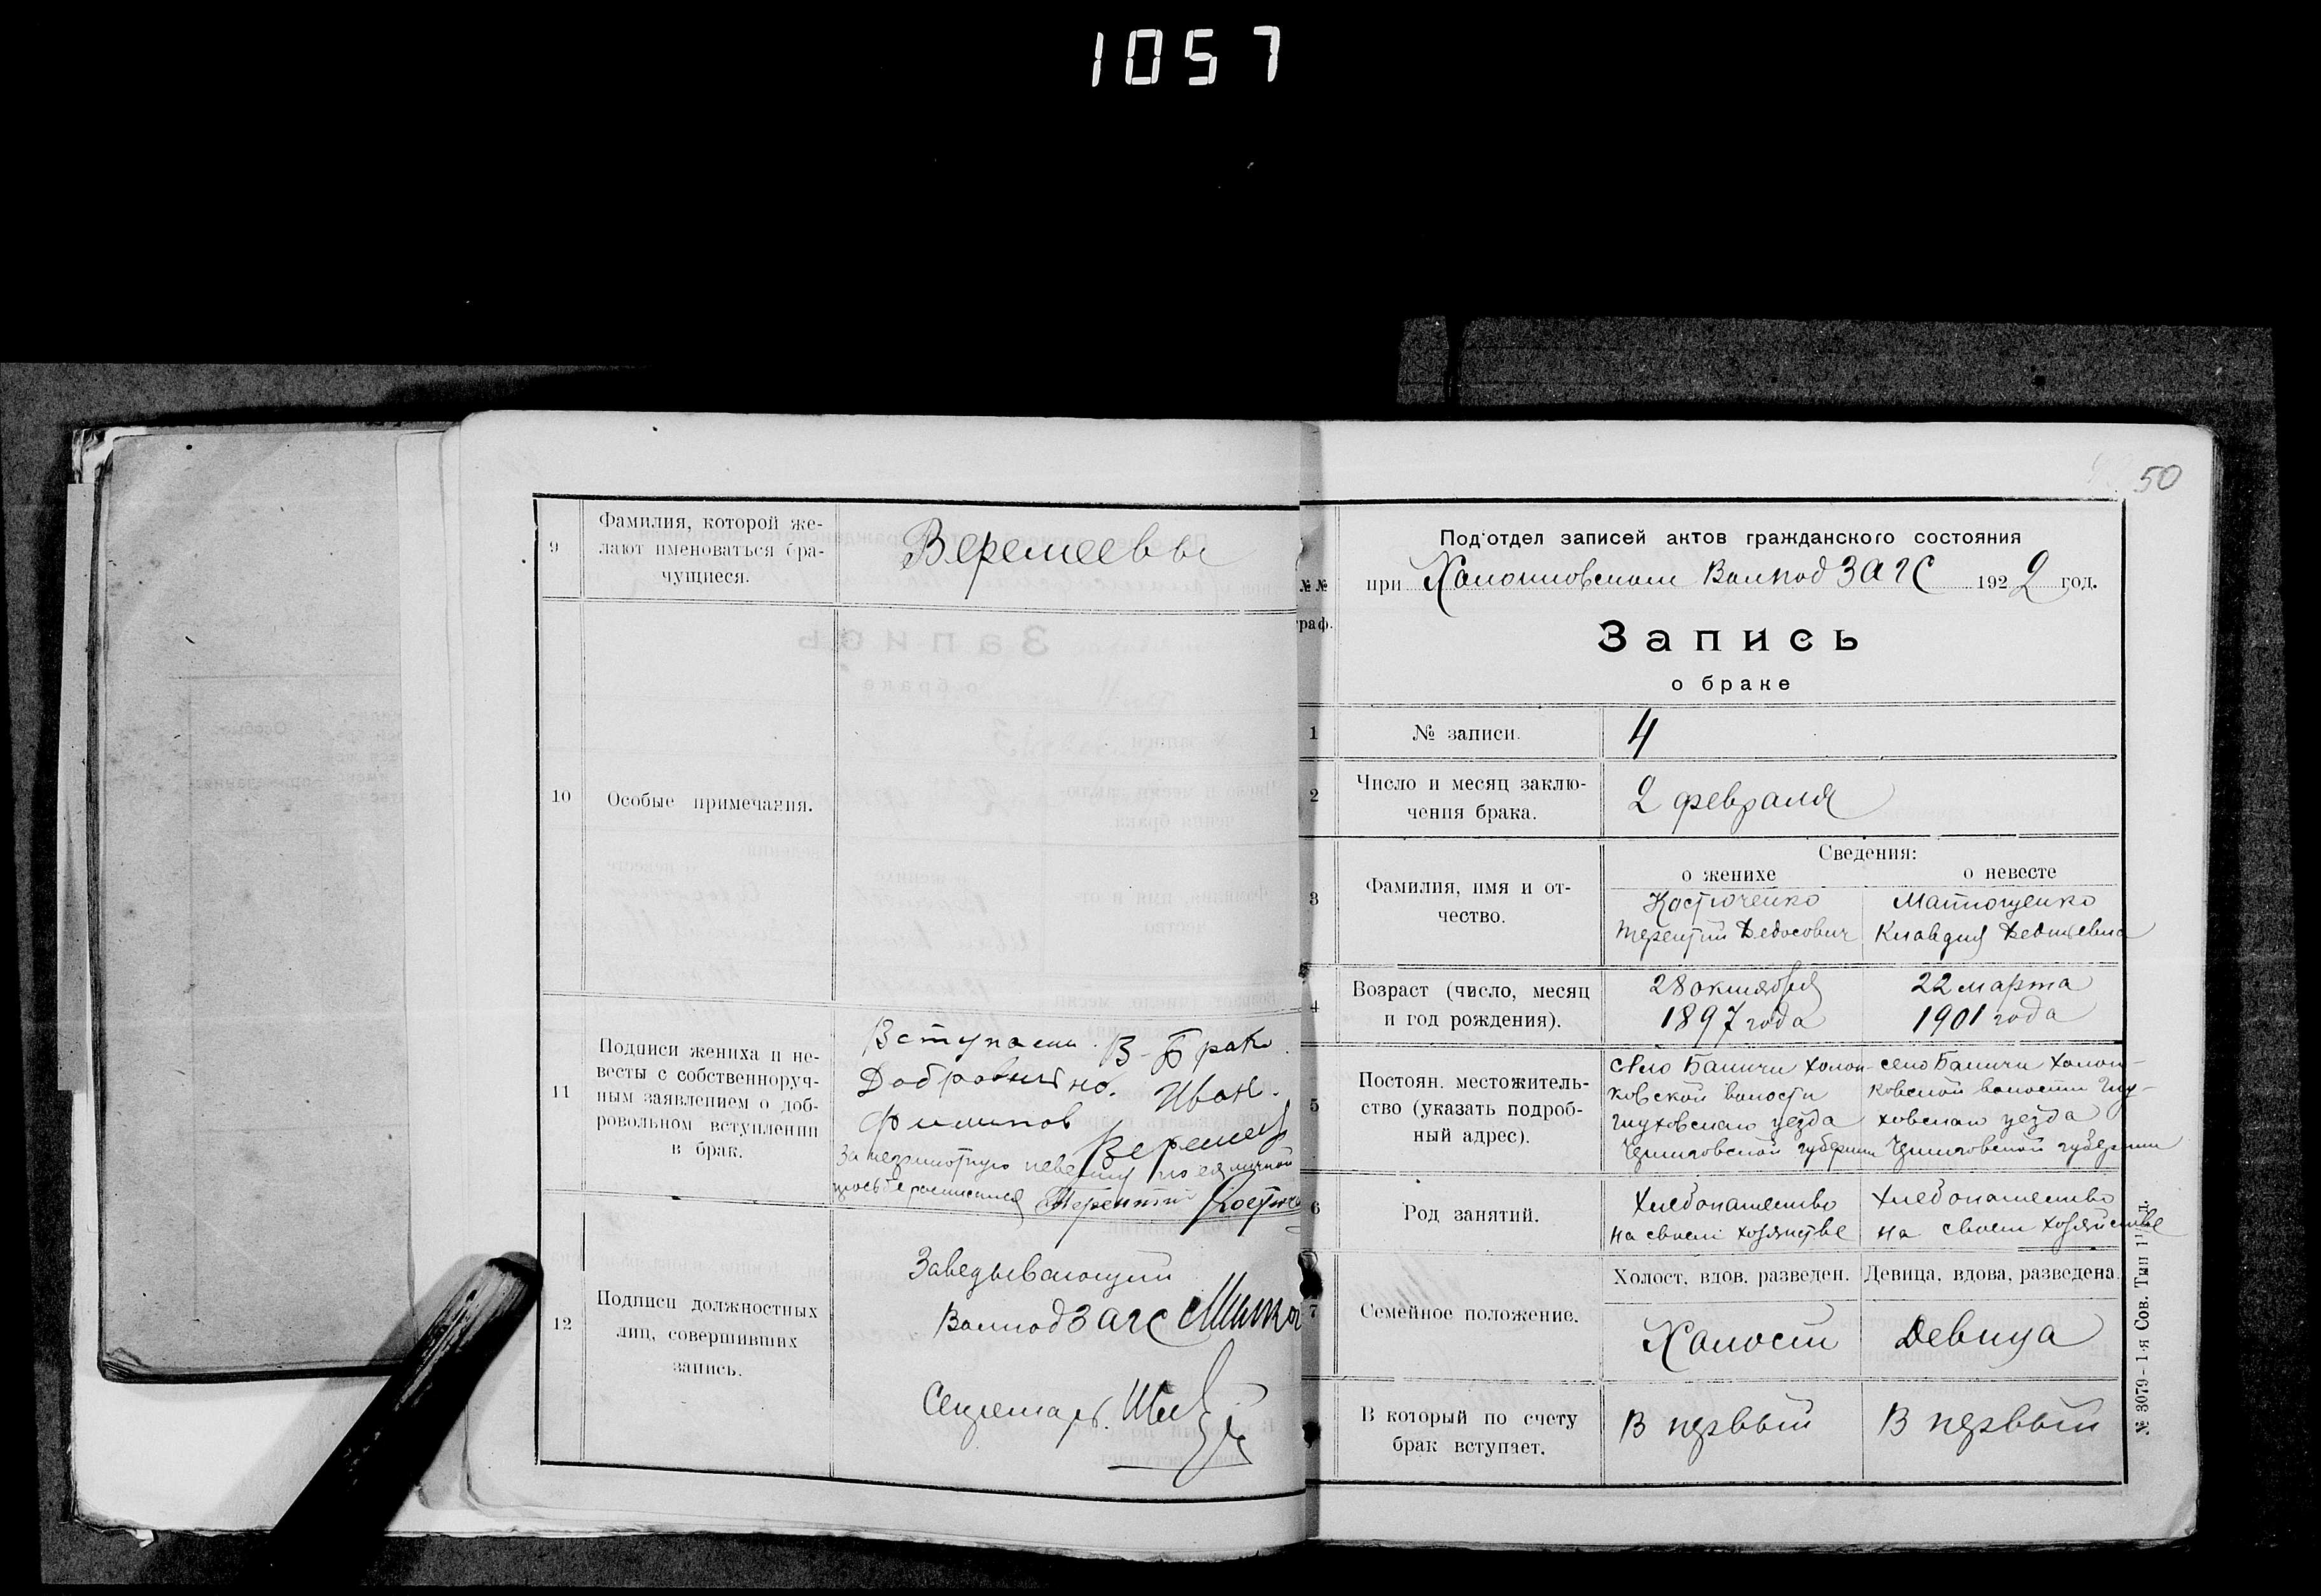 1057
9
Фамилия, которой же-
лают именоваться бра-
чущиеся.
Веремеевы
10
Особые примечания.
11
Подписи жениха и не-
весты с собственноруч-
ным заявлением о доб-
ровольном вступлении
в брак.
Вступаем В-Брак
Добровольно. Иван.
Филипов
Веремей
За неграмотную невесту по ея личной
просьбе росписался Терентий
12
Подписи должностных
лиц, совершивших
запись.
Заведывающий
ВолподЗАГС
Секретарь.
50
№№
граф.
Под'отдел записей актов гражданского состояния
при ВолподЗАГС 1922 год.
Запись
о браке
1
№ записи.
4
2
Число и месяц заклю-
чения брака.
2 февраля
3
Фамилия, имя и от-
чество.
Сведения:
о женихе
о невесте
Костюченко
Терентий Федосович
Матющенко
Клавдия
4
Возраст (число, месяц
и год рождения).
28 октября
1897 года
22 марта
1901 года
5
Постоян. местожитель-
ство (указать подроб-
ный адрес).
село Баничи Холоп-
ковской волости
Глуховскаго уезда
Черниговской губернии
село Баничи Холоп-
ковской волости Глу-
ховскаго уезда
Черниговской губернии
6
Род занятий.
Хлебопашество
на своем хозяйстве
Хлебопашество
на своем хозяйстве
7
Семейное положение.
Холост, вдов, разведен.
Девица, вдова, разведена.
Холост
Девица
В который по счету
брак вступает.
В первый
В первый
№ 3079-1-я Сов. Тип